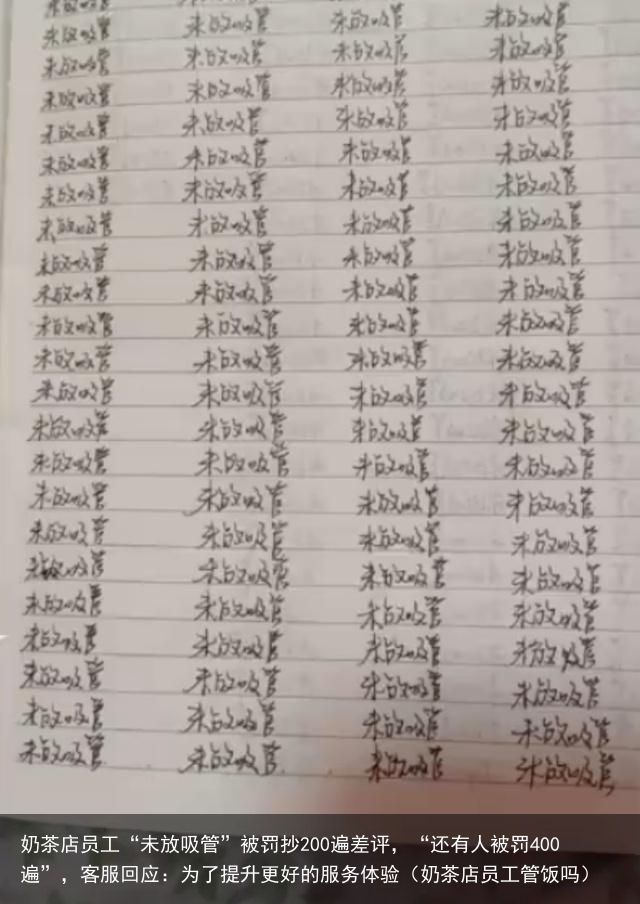 未放吸管 未放吸管 未放吸管 未放吸管
未放吸管 未放吸管 未放吸管 未放吸管
未放吸管 未放吸管 未放吸管 未放吸管
未放吸管 未放吸管 未放吸管 未放吸管
未放吸管 未放吸管 未放吸管 未放吸管
未放吸管 未放吸管 未放吸管 未放吸管
未放吸管 未放吸管 未放吸管 未放吸管
未放吸管 未放吸管 未放吸管 未放吸管
未放吸管 未放吸管 未放吸管 未放吸管
未放吸管 未放吸管 未放吸管 未放吸管
未放吸管 未放吸管 未放吸管 未放吸管
未放吸管 未放吸管 未放吸管 未放吸管
未放吸管 未放吸管 未放吸管 未放吸管
未放吸管 未放吸管 未放吸管 未放吸管
未放吸管 未放吸管 未放吸管 未放吸管
未放吸管 未放吸管 未放吸管 未放吸管
未放吸管 未放吸管 未放吸管 未放吸管
未放吸管 未放吸管 未放吸管 未放吸管
未放吸管 未放吸管 未放吸管 未放吸管
未放吸管 未放吸管 未放吸管 未放吸管
未放吸管 未放吸管 未放吸管 未放吸管
未放吸管 未放吸管 未放吸管 未放吸管
奶茶店员工“未放吸管”被罚抄200遍差评，“还有人被罚400
遍”，客服回应：为了提升更好的服务体验（奶茶店员工管饭吗）